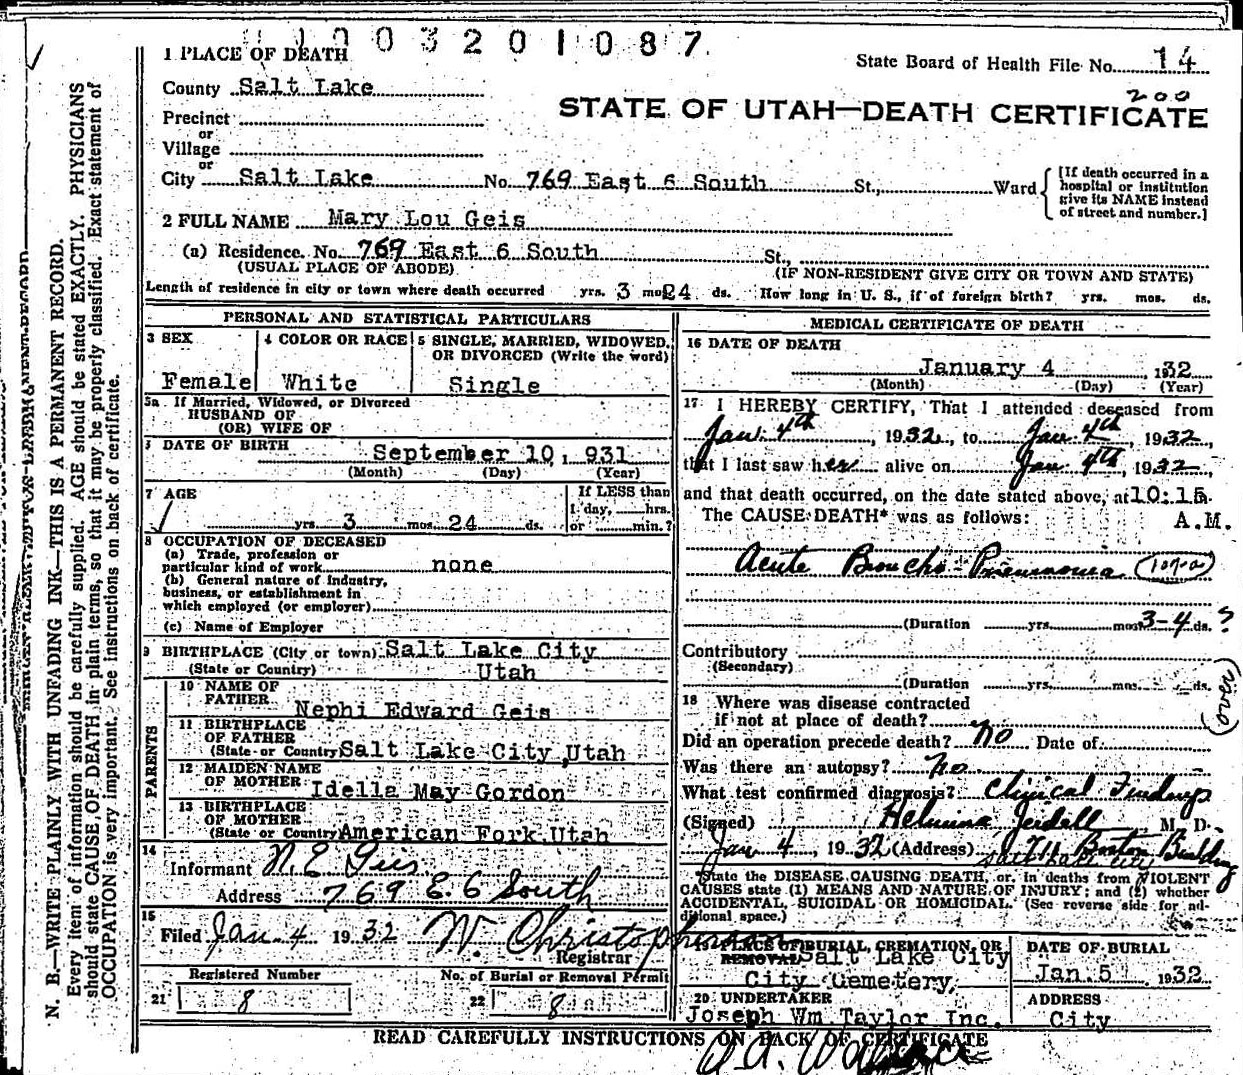 1003201087
1 PLACE OF DEATH
State Board of Health File No. 14
County Salt Lake
200
STATE OF UTAH—DEATH CERTIFICATE
Precinct
or
Village
or
City Salt Lake No. 769 East 6 South St., Ward
[If death occurred in a hospital or institution give its NAME instead of street and number.]
2 FULL NAME Mary Lou Geis
(a) Residence. No. 769 East 6 South St.,
(USUAL PLACE OF ABODE) (IF NON-RESIDENT GIVE CITY OR TOWN AND STATE)
Length of residence in city or town where death occurred yrs. 3 mos. 24 ds. How long in U. S., if of foreign birth? yrs. mos. ds.
PERSONAL AND STATISTICAL PARTICULARS
3 SEX 4 COLOR OR RACE 5 SINGLE, MARRIED, WIDOWED, OR DIVORCED (Write the word)
Female White Single
5a If Married, Widowed, or Divorced
HUSBAND OF
(OR) WIFE OF
DATE OF BIRTH
September 10, 931
(Month) (Day) (Year)
7 AGE If LESS than
1 day, hrs.
yrs. 3 mos. 24 ds. or min.?
8 OCCUPATION OF DECEASED
(a) Trade, profession or
particular kind of work none
(b) General nature of industry,
business, or establishment in
which employed (or employer)
(c) Name of Employer
9 BIRTHPLACE (City or town) Salt Lake City
(State or Country) Utah
PARENTS
10 NAME OF
FATHER Nephi Edward Geis
11 BIRTHPLACE
OF FATHER
(State or Country Salt Lake City, Utah
12 MAIDEN NAME
OF MOTHER Idella May Gordon
13 BIRTHPLACE
OF MOTHER
(State or Country American Fork, Utah
14
Informant N. E. Geis
Address 769 E. 6 South
15
Filed Jan 4 1932 W. Christopherson
Registrar
Registered Number No. of Burial or Removal Permit
21 8 22 8
MEDICAL CERTIFICATE OF DEATH
16 DATE OF DEATH
January 4, 1932
(Month) (Day) (Year)
17 I HEREBY CERTIFY, That I attended deceased from
Jan. 4th, 1932, to Jan. 4th, 1932,
that I last saw her alive on Jan 4th, 1932,
and that death occurred, on the date stated above, at 10:15
The CAUSE DEATH* was as follows: A.M.
Acute Broncho Pneumonia (107-a)
(Duration yrs. mos. 3-4 ds. ?
Contributory
(Secondary)
(Duration yrs. mos. ds.
18 Where was disease contracted
if not at place of death?
Did an operation precede death? No Date of
Was there an autopsy? No
What test confirmed diagnosis? Clinical Findings
(Signed) M. D.
Jan 4, 1932 (Address) Boston Building
Salt Lake City
*State the DISEASE CAUSING DEATH, or, in deaths from VIOLENT
CAUSES state (1) MEANS AND NATURE OF INJURY; and (2) whether
ACCIDENTAL, SUICIDAL OR HOMICIDAL. (See reverse side for ad-
ditional space.)
PLACE OF BURIAL, CREMATION, OR DATE OF BURIAL
REMOVAL Salt Lake City
City Cemetery, Jan. 5 1932
20 UNDERTAKER ADDRESS
Joseph Wm Taylor Inc. City
READ CAREFULLY INSTRUCTIONS ON BACK OF CERTIFICATE
N. B.—WRITE PLAINLY WITH UNFADING INK—THIS IS A PERMANENT RECORD.
Every item of information should be carefully supplied. AGE should be stated EXACTLY. PHYSICIANS
should state CAUSE OF DEATH in plain terms, so that it may be properly classified. Exact statement of
OCCUPATION is very important. See instructions on back of certificate.